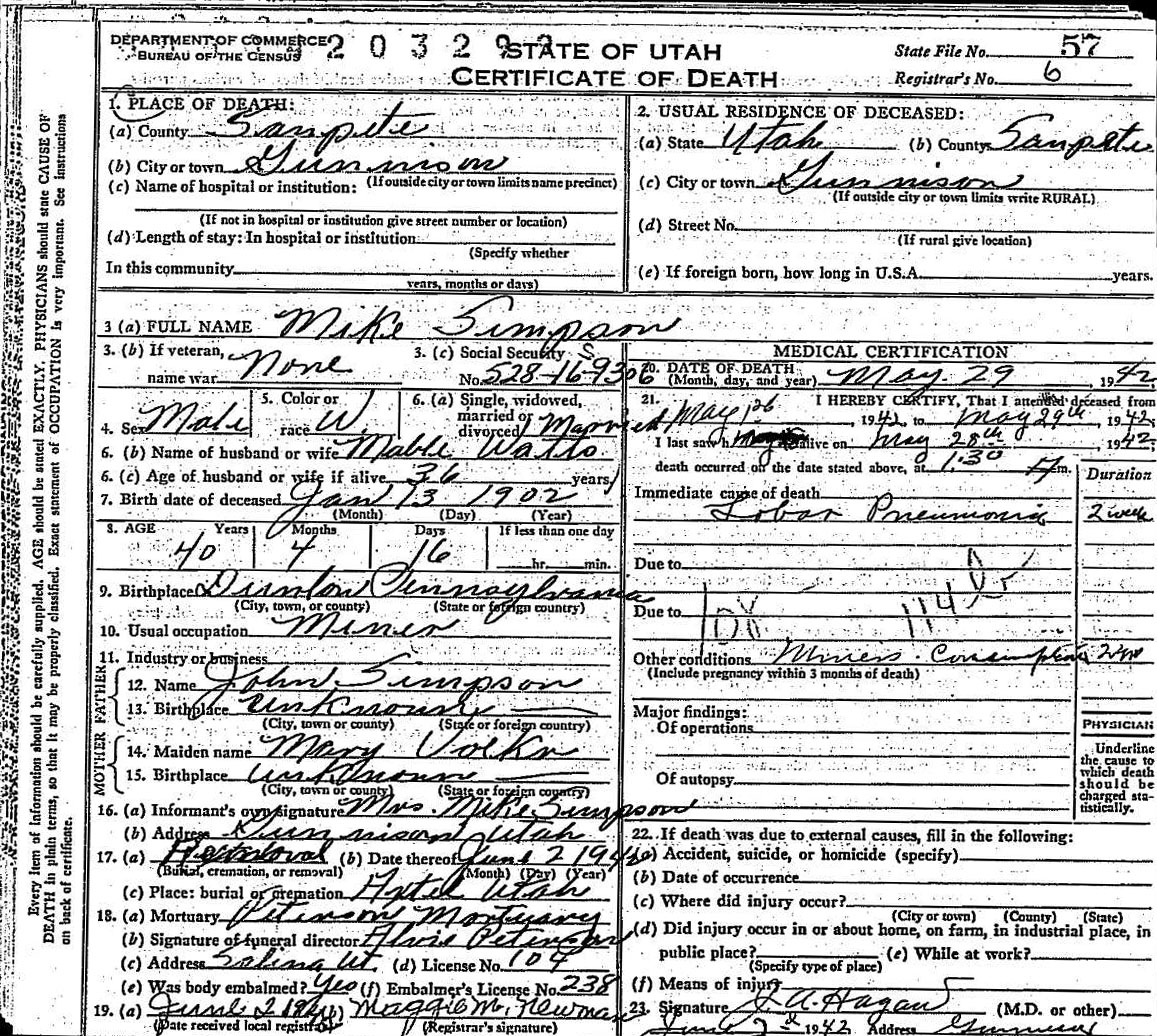 DEPARTMENT OF COMMERCE
BUREAU OF THE CENSUS
STATE OF UTAH
CERTIFICATE OF DEATH
State File No. 57
Registrar's No. 6
Every item of information should be carefully supplied. AGE should be stated EXACTLY. PHYSICIANS should state CAUSE OF
DEATH in plain terms, so that it may be properly classified. Exact statement of OCCUPATION is very important. See instructions
on back of certificate.
1. PLACE OF DEATH:
(a) County Sanpete
(b) City or town Gunnison
(c) Name of hospital or institution: (If outside city or town limits name precinct)
(If not in hospital or institution give street number or location)
(d) Length of stay: In hospital or institution
(Specify whether
In this community
years, months or days)
2. USUAL RESIDENCE OF DECEASED:
(a) State Utah (b) County Sanpete
(c) City or town Gunnison
(If outside city or town limits write RURAL)
(d) Street No.
(If rural give location)
(e) If foreign born, how long in U.S.A. years.
3 (a) FULL NAME Mike Simpson
3. (b) If veteran, name war None
3. (c) Social Security No. 528-16-9306
4. Sex Male
5. Color or race W
6. (a) Single, widowed, married or divorced Married
6. (b) Name of husband or wife Mable Watts
6. (c) Age of husband or wife if alive 36 years
7. Birth date of deceased Jan 13 1902
(Month) (Day) (Year)
8. AGE Years Months Days If less than one day
40 4 16 hr. min.
9. Birthplace Dunlow Pennsylvania
(City, town, or county) (State or foreign country)
10. Usual occupation Miner
11. Industry or business
FATHER
12. Name John Simpson
13. Birthplace Unknown
(City, town or county) (State or foreign country)
MOTHER
14. Maiden name Mary
15. Birthplace Unknown
(City, town or county) (State or foreign country)
16. (a) Informant's own signature Mrs. Mike Simpson
(b) Address Gunnison Utah
17. (a) Removal (b) Date thereof June 2 1942
(Burial, cremation, or removal) (Month) (Day) (Year)
(c) Place: burial or cremation Axtel Utah
18. (a) Mortuary Peterson Mortuary
(b) Signature of funeral director Alvis Peterson
(c) Address Salina Ut. (d) License No. 104
(e) Was body embalmed? Yes (f) Embalmer's License No. 238
19. (a) June 2 1942 (b) Maggie M. Newman
(Date received local registrar) (Registrar's signature)
MEDICAL CERTIFICATION
20. DATE OF DEATH
(Month, day, and year) May 29, 1942
21. I HEREBY CERTIFY, That I attended deceased from
May 1st 1942, to May 29th, 1942,
I last saw h alive on May 28th 1942
death occurred on the date stated above, at 1:30 m.
Duration
Immediate cause of death
Lobar Pneumonia 2 week
Due to
Due to
114
Other conditions Miners Consumption
(Include pregnancy within 3 months of death)
Major findings:
Of operations
Of autopsy
PHYSICIAN
Underline
the cause to
which death
should be
charged sta-
tistically.
22. If death was due to external causes, fill in the following:
(a) Accident, suicide, or homicide (specify)
(b) Date of occurrence
(c) Where did injury occur?
(City or town) (County) (State)
(d) Did injury occur in or about home, on farm, in industrial place, in
public place? (e) While at work?
(Specify type of place)
(f) Means of injury
23. Signature J. A. Hagan (M.D. or other)
1942 Address Gunnison